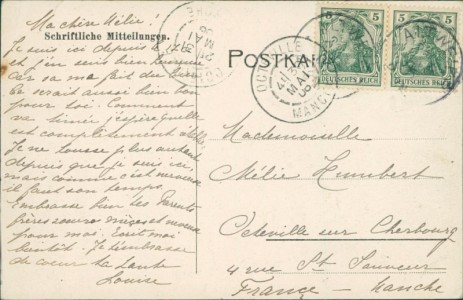 Ma chère Mélie!
Schriftliche Mitteilungen.
Je suis ici depuis le
et j'en suis bien heureuse
car sa me fait du bien
Ce serait aussi bien bon
pour toi. Comment
va j'espère qu'elle
est complètement
Je ne tousse plus autant
depuis que je suis ici,
mais comme c'est nerveux
il faut son temps.
Embrasse bien tes Parents
frères nièces et neveux
pour moi. Ecrit moi
bientôt. Je t'embrasse
de coeur ta tante
Louise
POSTKARTE
5 5
DEUTSCHES REICH
5
DEUTSCHES REICH
OCTEVILLE
MAI
06
MANCHE
Mademoiselle
Mélie Humbert
Octeville sur Cherbourg
4 rue St. Sauveur
France — Manche